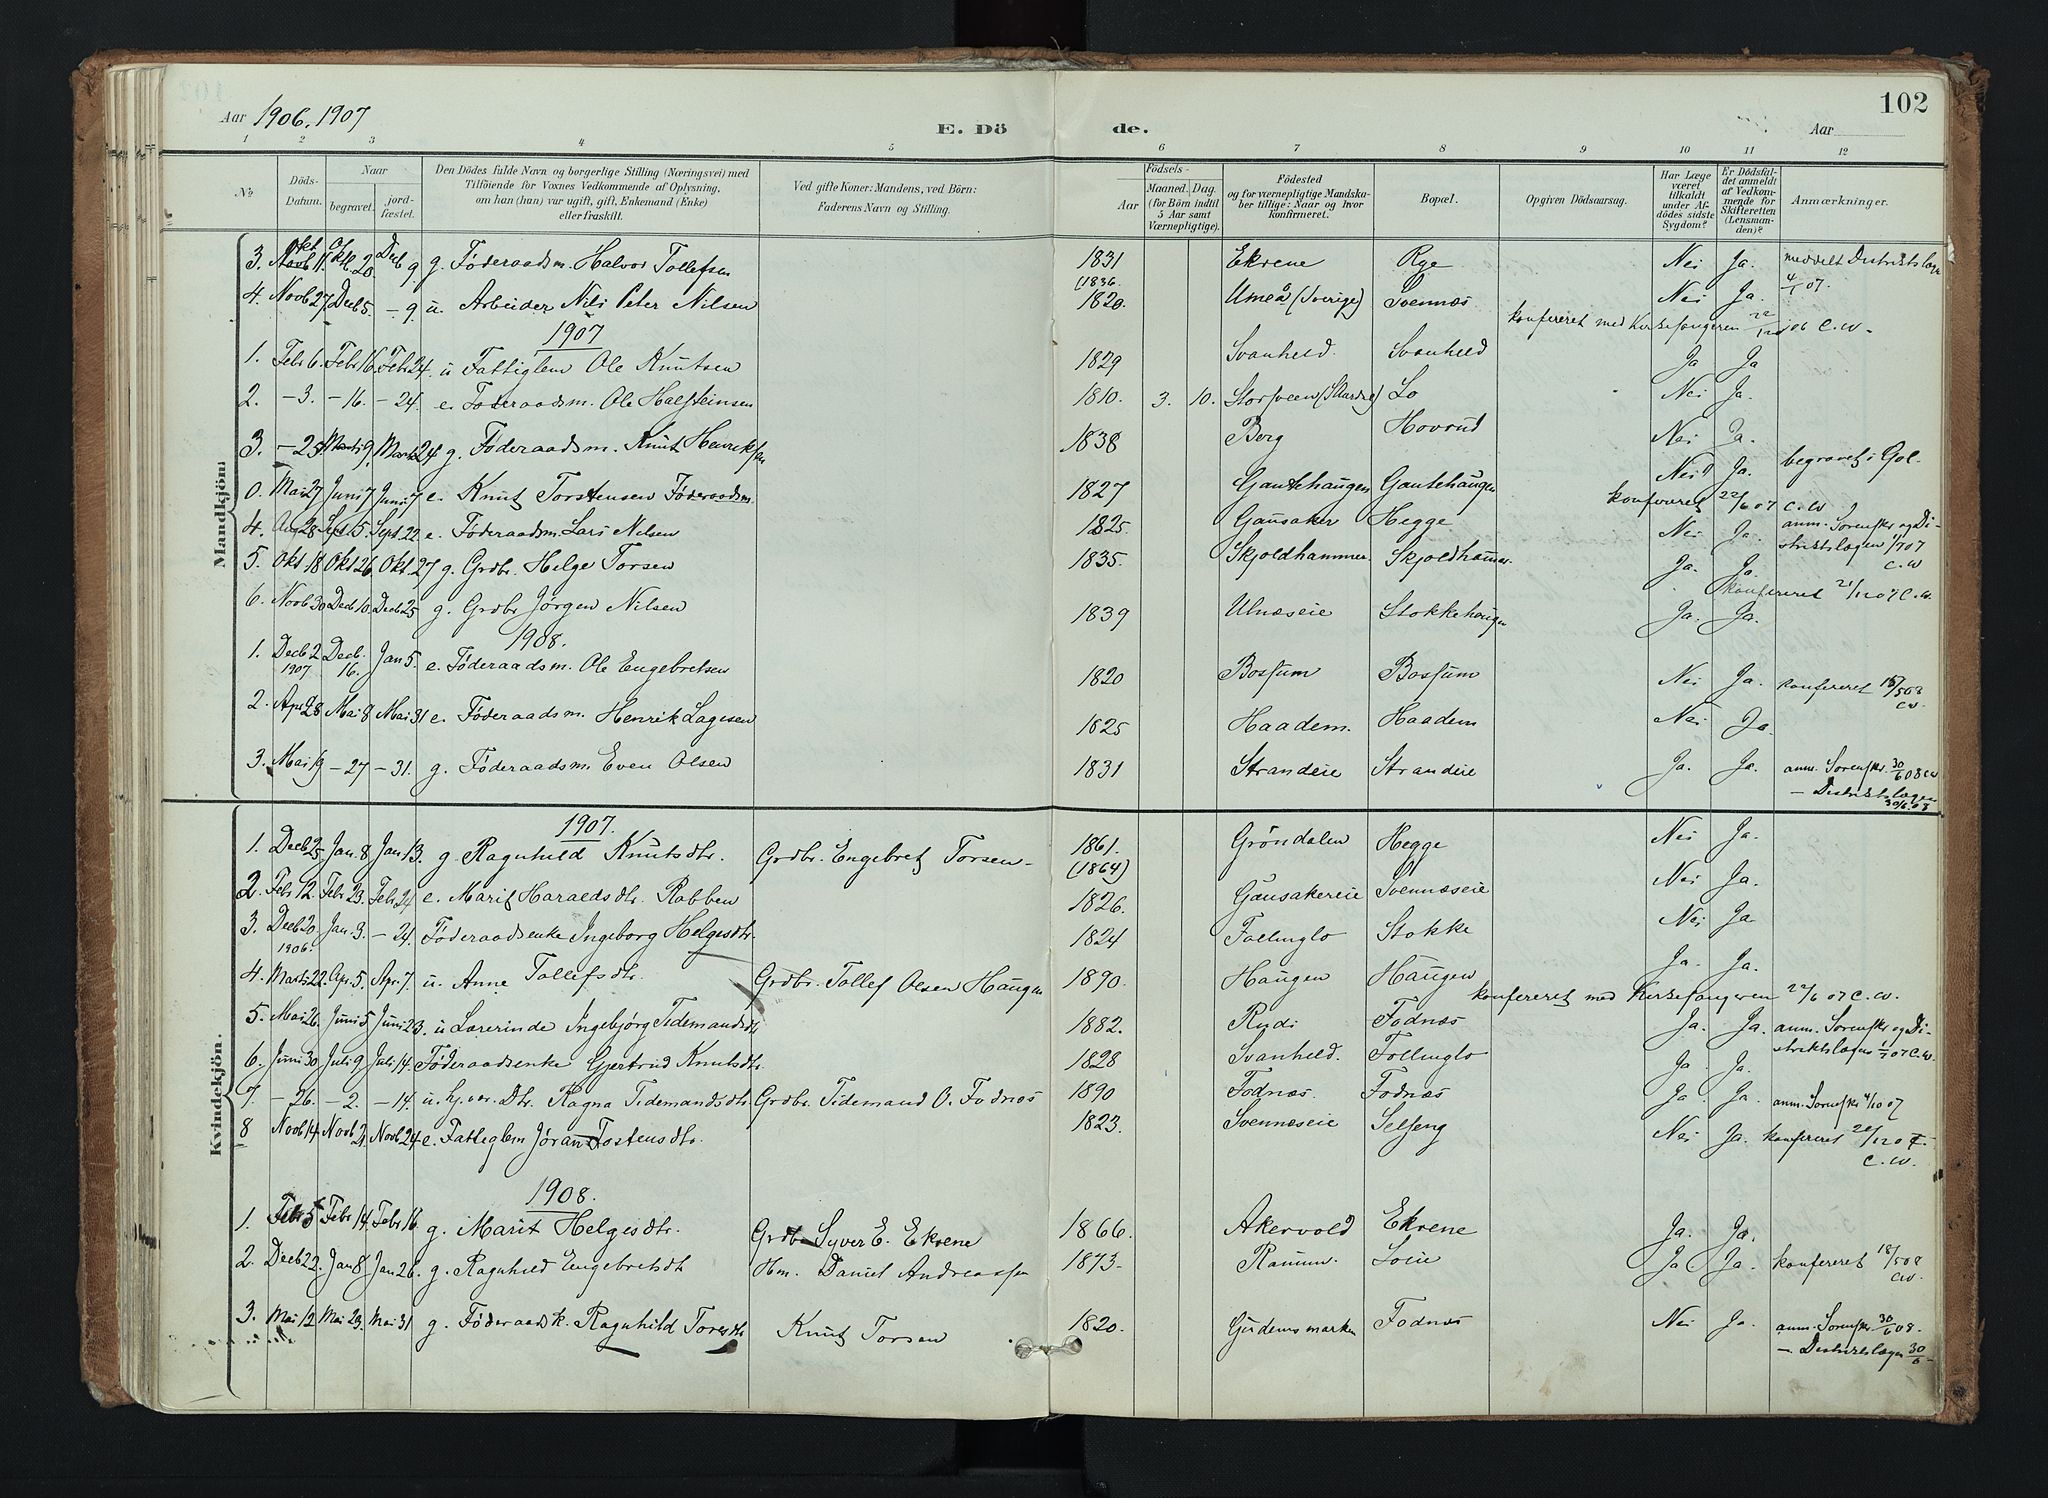 102
Aar 1906, 1907
E. Dö de.
Aar
1 2 3 4 5 6 7 8 9 10 11 12
No
Döds-Datum.
Naar
begravet.
jordfæstet.
Den Dödes fulde Navn og borgerlige Stilling (Næringsvei) med
Tilföiende for Voxnes Vedkommende af Oplysning,
om han (hun) var ugift, gift, Enkemand (Enke)
eller fraskilt.
Ved gifte Koner: Mandens, ved Börn:
Faderens Navn og Stilling.
Födsels-
Aar
Maaned. Dag.
(for Börn indtil
5 Aar samt
Værnepligtige).
Födested
og for værnepligtige Mandska-
ber tillige: Naar og hvor
Konfirmeret.
Bopæl.
Opgiven Dödsaarsag.
Har Læge
været
tilkaldt
under Af-
dödes sidste
Sygdom?
Er Dödsfal-
det anmeldt
af Vedkom-
mende for
Skifteretten
(Lensman-
den)?
Anmærkninger.
Mandkjön:
3. Okt. 11. Okt. 20 Decb 9 g. Föderaadsm. Halvor Tollefsen 1831 Ekrene Rye Nei Ja. meddelt Distriktslægen 4/1 07.
4. Novb 27 Decb 5. – 9. u. Arbeider Nils Peter Nilsen (1836. 1820. Umeå (Sverige) Svennæs Nei Ja.
konfereret med Kirkesangeren 22/12 06 C.W.
1907
1. Febr 6. Febr 16 Febr 24. u Fattiglem Ole Knutsen 1829 Svanheld. Svanheld Ja Ja
2. – 3. – 16. – 24. e. Föderaadsm. Ole Halsteinsen 1810. 3. 10. Storsveen Lo Nei Ja.
3. – 25 Marts 9. Marts 24 g. Föderaadsm. Knut Henriksen 1838 Berg Hovrud Nei Ja.
0. Mai 27 Juni 7 Juni 7 e. Knut Torstensen Föderaadsm. 1827 Gautehaugen Gautehaugen Nei Ja. begravet i Gol.
konfereret 22/6 07 C.W
4. Aug 28 Sept. 5. Sept. 22 e. Föderaadsm. Lars Nilsen 1825. Gausaker Hegge Nei Ja. anm. Sorenskr og Di-
striktslægen 1/7 07
C.W
5. Okt 18 Okt 26 Okt. 27 g. Grdbr. Helge Torsen 1835. Skjoldhammer Skjoldhammer Ja. Ja.
konfereret 21/12 07 C.W.
6. Novb 30 Decb 10. Decb 25 g. Grdbr Jörgen Nilsen 1839 Ulnæseie Stokkehaugen Ja. Ja.
1908.
1. Decb 2 1907 Decb. 16. Jan 5. e. Föderaadsm. Ole Engebretsen 1820 Bossum Bossum Nei Ja. konfereret 18/5 08
CW.
2. Apr 28 Mai 8 Mai 31 e. Föderaadsm. Henrik Lagesen 1825 Haadem. Haadem Nei Ja.
3. Mai 19 – 27 – 31. g. Föderaadsm. Even Olsen 1831 Strandeie Strandeie Ja. Ja. anm. Sorenskr. 30/6 08 CW
– Distriktslægen
30/6 08
Kvindekjön.
1907.
1. Decb 25 Jan. 8 Jan 13. g. Ragnhild Knutsdtr. Grdbr. Engebret Torsen – 1861. (1864) Gröndalen Hegge Nei Ja.
2. Febr 12. Febr 23. Febr 24 e. Marit Haraldsdtr. Rabben 1826. Gausakereie Svennæseie Nei Ja.
3. Decb 20. 1906. Jan. 3. – 24. Föderaadsenke Ingeborg Helgesdtr. 1824 Follinglo Stokke Nei Ja
4. Marts 22. Apr. 5. Apr. 7. u. Anne Tollefsdtr. Grdbr. Tollef Olsen Haugen 1890. Haugen Haugen Ja. Ja.
konfereret med Kirkesangeren 22/6 07 C.W.
5. Mai 26. Juni 5 Juni 23. u Lærerinde Ingebjörg Tidemandsdtr 1882. Rudi Fodnæs Ja. Ja. anm. Sorenskr og Di-
striktslægen 1/7 07 C.W.
6. Juni 30 Juli 9 Juli 14. Föderaadsenke Gjertrud Knutsdtr. 1828 Svanheld. Follinglo Ja. Ja.
7. – 26. – 2. – 14. u. hj.vær. Dtr. Ragna Tidemandsdtr. Grdbr. Tidemand O. Fodnæs 1890 Fodnæs. Fodnæs Ja. Ja. anm. Sorenskr 4/10 07
8 Novb 14 Novb 21 Novb 24. e. Fattiglem Jöran Tostensdtr. 1823. Svennæseie Selseng Nei Ja. konfereret 20/12 07
C.W.
1908.
1. Febr 5 Febr 14 Febr 16 g. Marit Helgesdtr. Grdbr Syver E. Ekrene 1866. Akervold Ekrene Ja. Ja.
2. Decb 22. Jan 8 Jan 26. g. Ragnhild Engebretsdt Hm. Daniel Andreassen 1873. Ranum. Loeie Ja Ja. konfereret 18/5 08
CW.
3. Mai 12 Mai 23. Mai 31 g. Föderaadsk. Ragnhild Toresdtr Knut Torsen 1820. Gudensmarken Fodnæs Nei Ja. anm. Sorenskr. 30/6 08.
– Distriktslægen 30/6 –